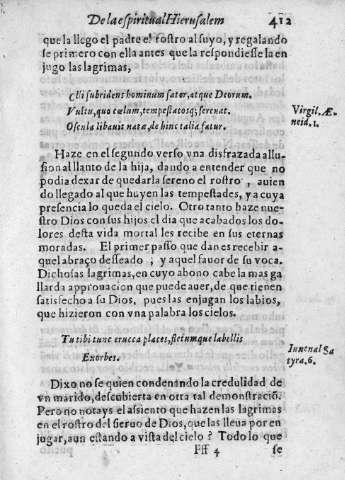 De la espiritual Hierusalem 412
que la llego el padre el rostro al suyo, y regalando
se primero con ella antes que la respondiesse la en
jugo las lagrimas,
Olli subridens hominum sator, atque Deorum.
Vultu, quo cœlum, tempestatosq; serenat.
Oscula libauit natæ, de hinc talia fatur.
Virgil. Æ-
neid. 1.
Haze en el segundo verso vna disfrazada allu-
sion al llanto de la hija, dando a entender que no
podia dexar de quedarla sereno el rostro, auien
do llegado al que huyen las tempestades, y a cuya
presencia lo queda el cielo. Otro tanto haze nue-
stro Dios con sus hijos el dia que acabados los do-
lores desta vida mortal les recibe en sus eternas
moradas. El primer passo que dan es recebir a-
quel abraço desseado, y aquel fauor de su voca.
Dichosas lagrimas, en cuyo abono cabe la mas ga
llarda approuacion que puede auer, de que tienen
satisfecho a su Dios, pues las enjugan los labios,
que hizieron con vna palabra los cielos.
Tu tibi tunc erucca places, fletumque labellis
Exorbes.
Iuuenal Sa
tyra. 6.
Dixo no se quien condenando la credulidad de
vn marido, descubierta en otra tal demostraciõ.
Pero no notays el assiento que hazen las lagrimas
en el rostro del sieruo de Dios, que las lleua por en
jugar, aun estando a vista del cielo? Todo lo que
Fff 4 se